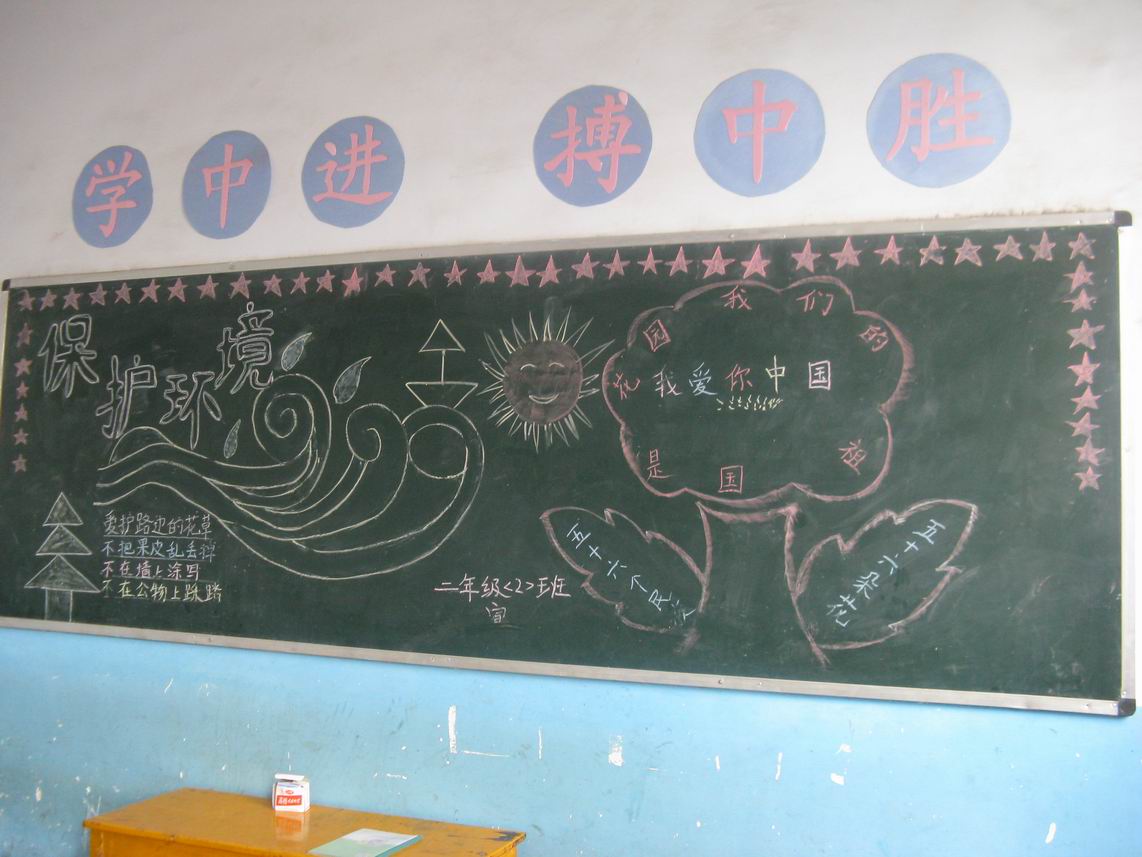 学中进 搏中胜
保护环境
爱护路边的花草
不把果皮乱丢掉
不在墙上涂写
不在公物上
二年级<2>班
宣
我们的祖国是花园
我爱你中国
五十六个民族
五十六朵花